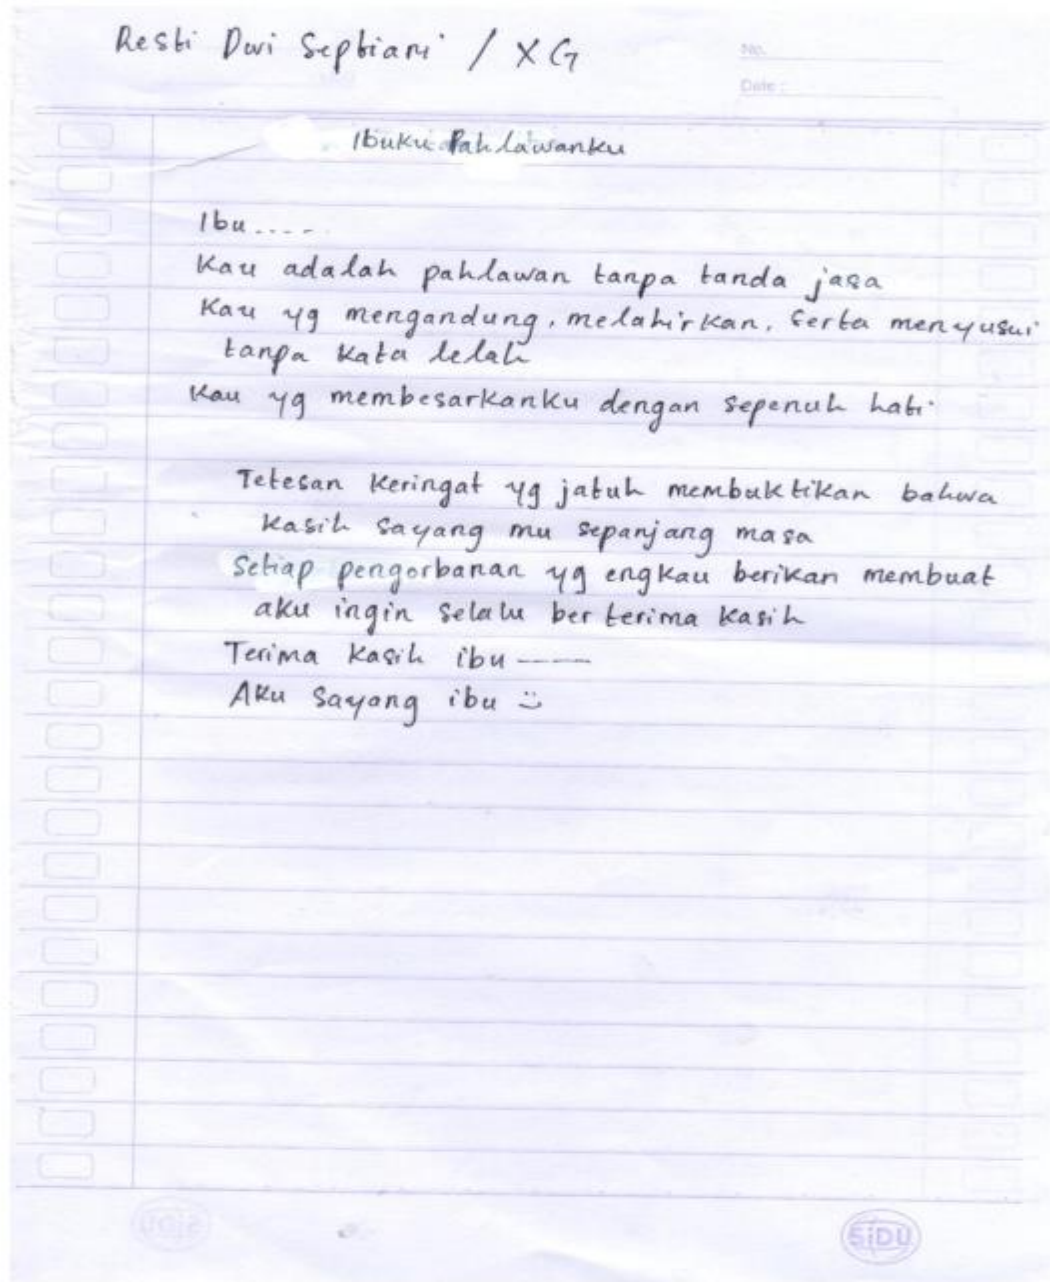 Resti Dwi Septiani / XG
No.
Date :
Ibuku Pahlawanku
Ibu.....
Kau adalah pahlawan tanpa tanda jasa
Kau yg mengandung, melahirkan, serta menyusui
tanpa kata lelah
Kau yg membesarkanku dengan sepenuh hati
Tetesan keringat yg jatuh membuktikan bahwa
kasih sayang mu sepanjang masa
Setiap pengorbanan yg engkau berikan membuat
aku ingin selalu ber terima kasih
Terima kasih ibu ——
Aku sayang ibu :)
SiDU